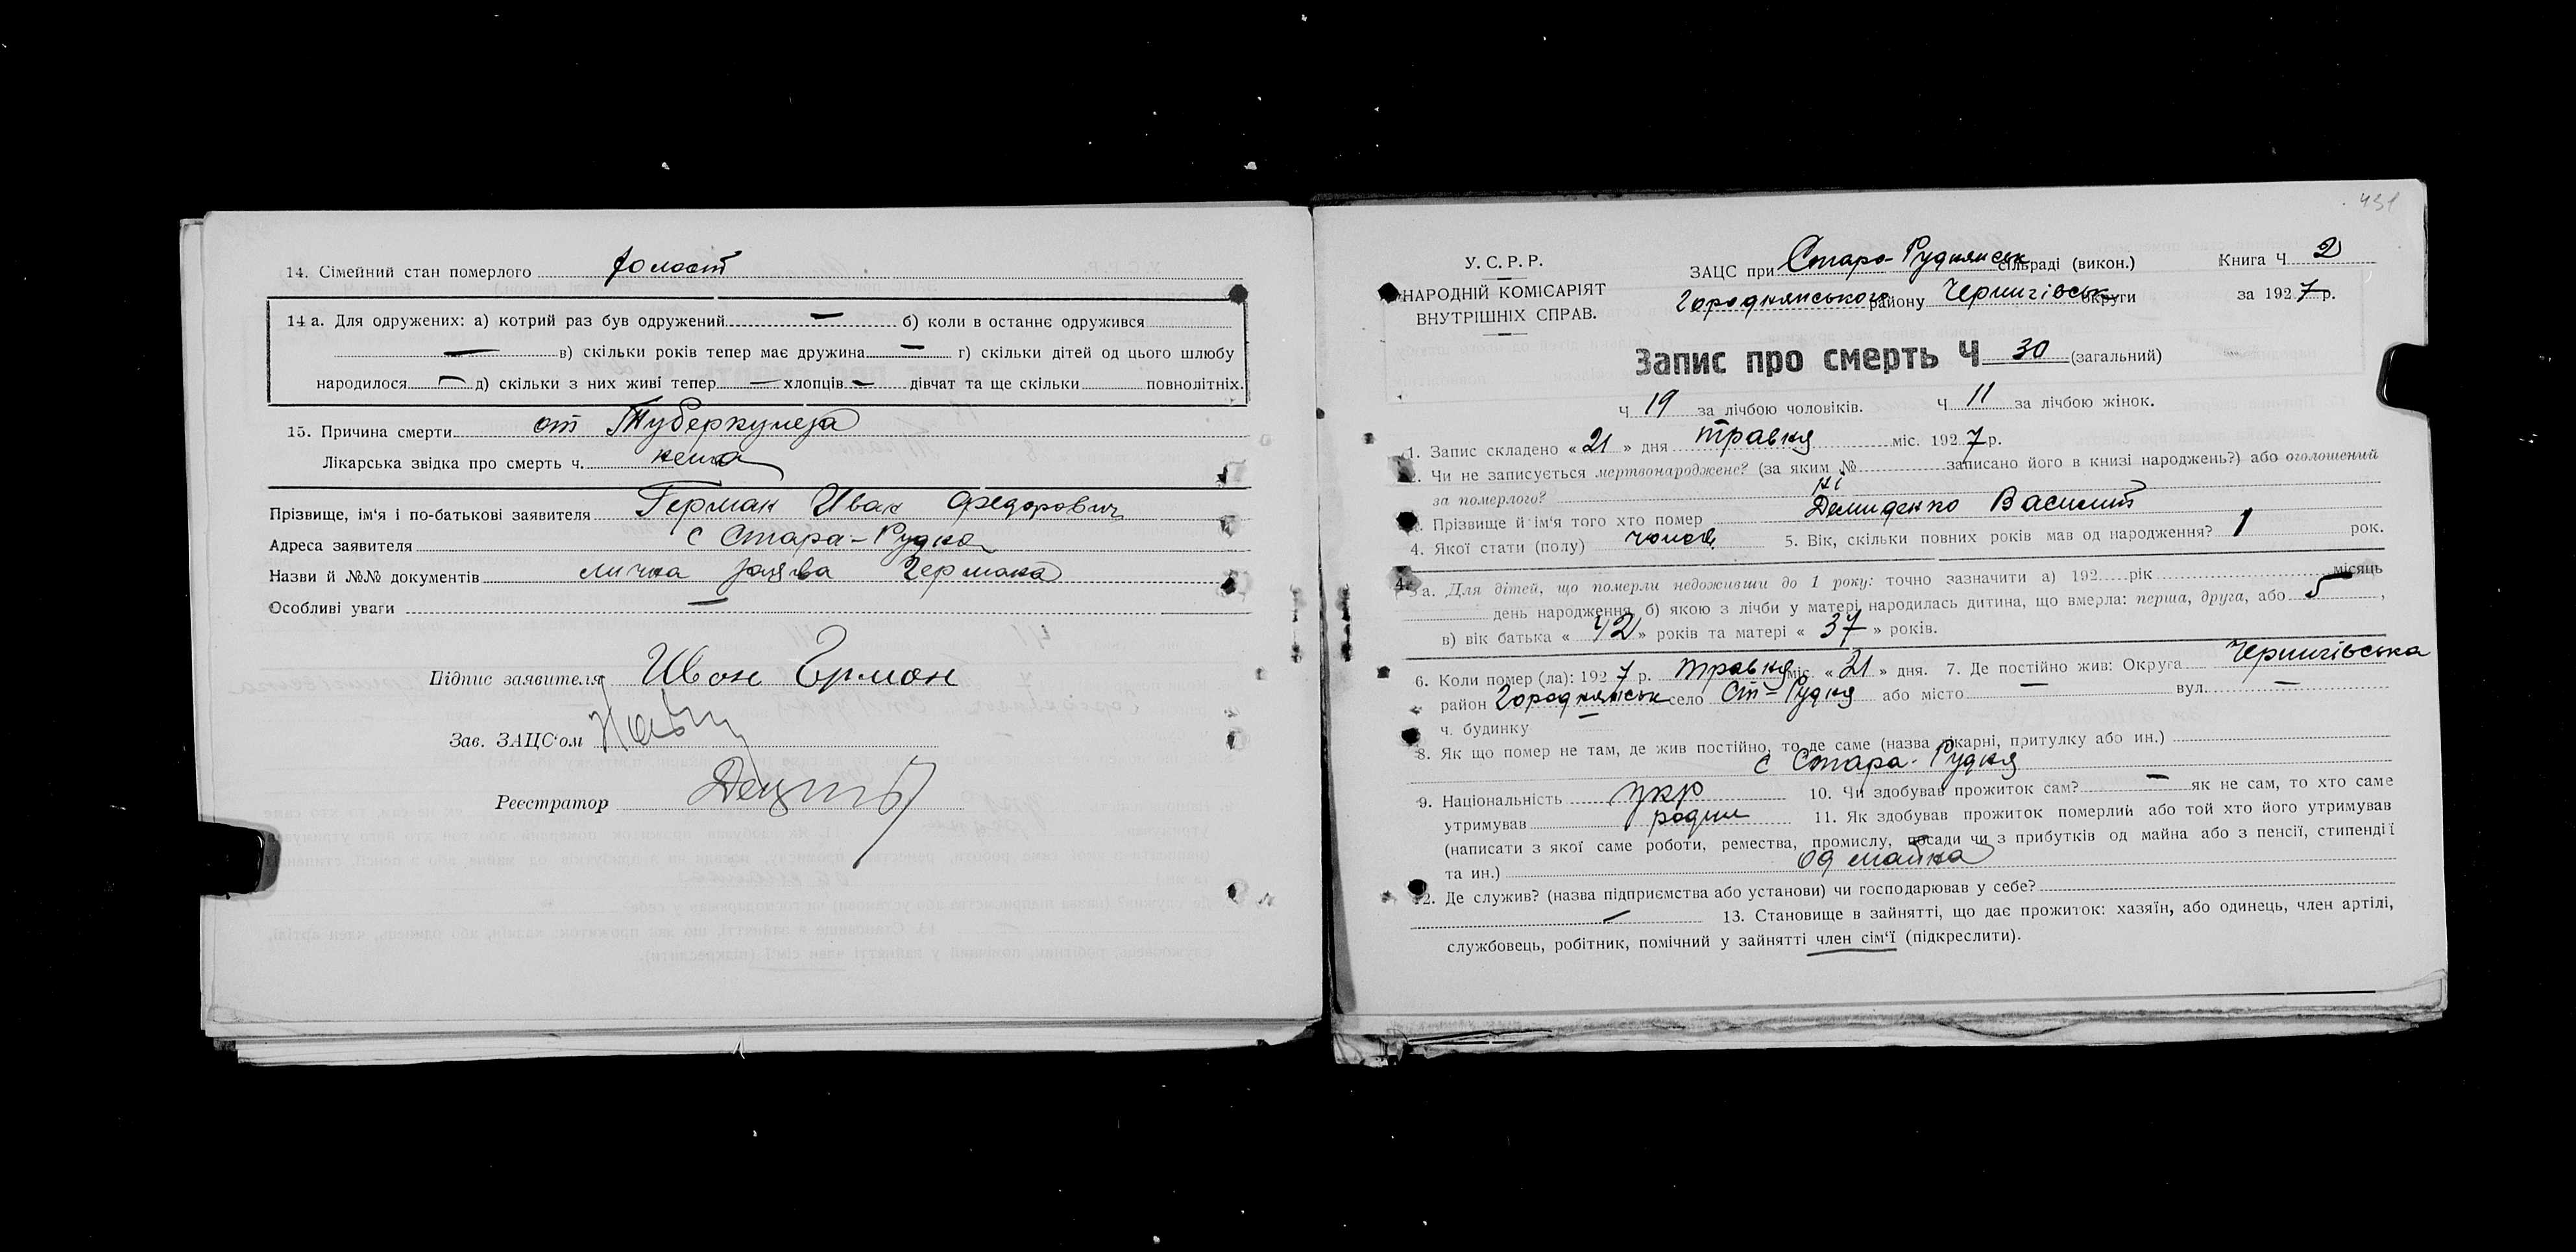 14. Сімейний стан померлого холост
14 а. Для одружених: а) котрий раз був одружений — б) коли в останнє одружився
— в) скільки років тепер має дружина — г) скільки дітей од цього шлюбу
народилося — д) скільки з них живі тепер — хлопців — дівчат та ще скільки повнолітніх.
15. Причина смерти от Туберкулеза
Лікарська звідка про смерть ч. нема
Прізвище, ім'я і по-батькові заявителя Герман Иван Федорович
Адреса заявителя с Стара-Рудня
Назви й №№ документів лична заява Германа
Особливі уваги —
Підпис заявителя Иван Герман
Зав. ЗАЦС'ом
Реєстратор
431
У. С. Р. Р.
НАРОДНІЙ КОМІСАРІЯТ
ВНУТРІШНІХ СПРАВ.
ЗАЦС при Старо-Руднянськ сільраді (викон.) Книга Ч 2
Городнянського району Чернигівськ округи за 1927 р.
Запис про смерть Ч 30 (загальний)
Ч 19 за лічбою чоловіків. Ч 11 за лічбою жінок.
1. Запис складено « 21 » дня травня міс. 1927 р.
2. Чи не записується мертвонароджене? (за яким № записано його в книзі народжень?) або оголошений
за померлого? ні
3. Прізвище й ім'я того хто помер Демиденко Василий
4. Якої стати (полу) чолов. 5. Вік, скільки повних років мав од народження? 1 рок.
5 а. Для дітей, що померли недоживши до 1 року: точно зазначити а) 192 рік місяць
день народження б) якою з лічби у матері народилась дитина, що вмерла: перша, друга, або 5 ,
в) вік батька « 42 » років та матері « 37 » років.
6. Коли помер (ла): 1927 р. травня міс. « 21 » дня. 7. Де постійно жив: Округа Чернигівська
район Городнянськ село Ст-Рудня або місто — вул. —
ч. будинку —
8. Як що помер не там, де жив постійно, то де саме (назва лікарні, притулку або ин.)
с Стара-Рудня
9. Національність укр 10. Чи здобував прожиток сам? — як не сам, то хто саме
утримував родичи 11. Як здобував прожиток померлий або той хто його утримував
(написати з якої саме роботи, ремества, промислу, посади чи з прибутків од майна або з пенсії, стипендії
та ин.) од майна
12. Де служив? (назва підприємства або установи) чи господарював у себе?
— 13. Становище в зайнятті, що дає прожиток: хазяїн, або одинець, член артілі,
службовець, робітник, помічний у зайнятті член сім'ї (підкреслити).